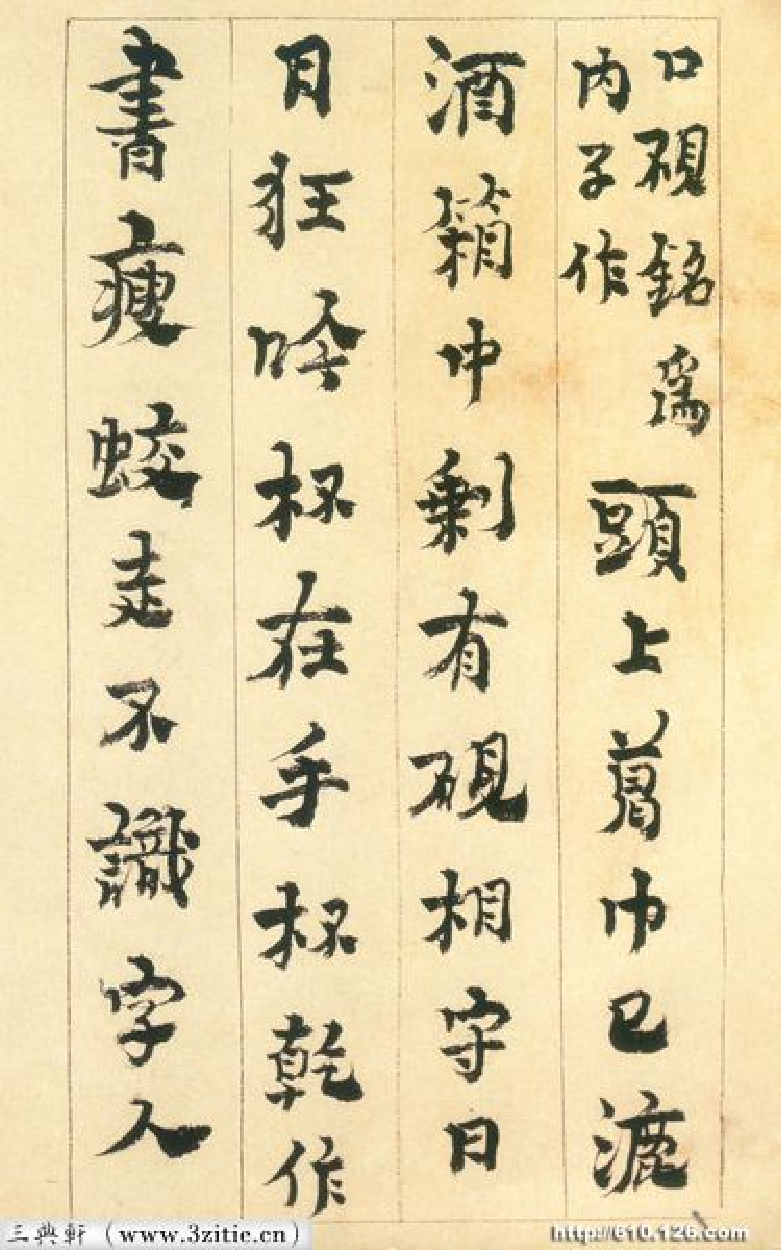 口硯銘爲
内子作
頭上葛巾已漉
酒箱中剩有硯相守日
月狂吟杯在手杯乾作
書瘦蛟走不識字人
三典軒（www.3zitie.cn）
http://610.126.com